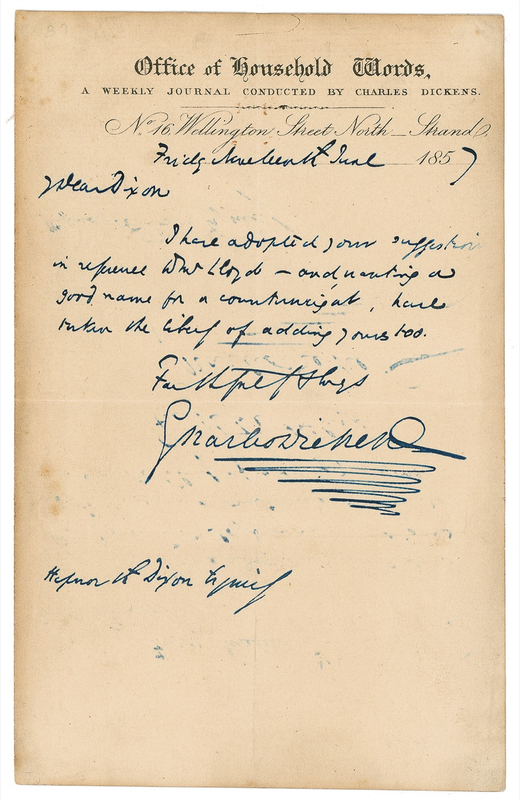 Office of Household Words,
A WEEKLY JOURNAL CONDUCTED BY CHARLES DICKENS.
No. 16, Wellington Street North, Strand.
Friday Nineteenth June 1857
My Dear Dixon
I have adopted your suggestion
in reference to Mr Lloyd – and wanting a
good name for a counterweight, have
taken the liberty of adding yours too.
Faithfully Yours
Charles Dickens
Hepworth Dixon Esquire